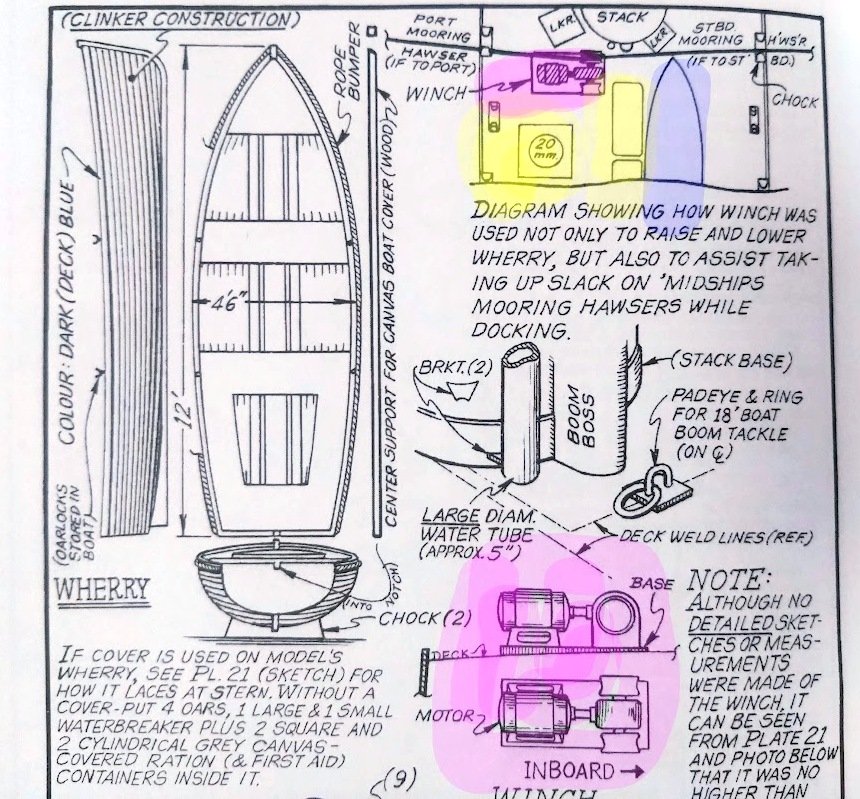 (CLINKER CONSTRUCTION)
COLOUR: DARK (DECK) BLUE
(OARLOCKS
STORED IN
BOAT)
12'
4'6"
ROPE
BUMPER
CENTER SUPPORT FOR CANVAS BOAT COVER (WOOD)
INTO
NOTCH
CHOCK (2)
WHERRY
IF COVER IS USED ON MODEL'S
WHERRY, SEE PL. 21 (SKETCH) FOR
HOW IT LACES AT STERN. WITHOUT A
COVER-PUT 4 OARS, 1 LARGE & 1 SMALL
WATERBREAKER PLUS 2 SQUARE AND
2 CYLINDRICAL GREY CANVAS-
COVERED RATION (& FIRST AID)
CONTAINERS INSIDE IT.
(9)
PORT
MOORING
HAWSER
(IF TO PORT)
WINCH
LKR.
STACK
LKR
STBD.
MOORING
H'WS'R
(IF TO ST'BD.)
CHOCK
20
mm.
DIAGRAM SHOWING HOW WINCH WAS
USED NOT ONLY TO RAISE AND LOWER
WHERRY, BUT ALSO TO ASSIST TAK-
ING UP SLACK ON 'MIDSHIPS
MOORING HAWSERS WHILE
DOCKING.
BRKT. (2)
BOOM
BOSS
(STACK BASE)
PADEYE & RING
FOR 18' BOAT
BOOM TACKLE
(ON ℄)
LARGE DIAM.
WATER TUBE
(APPROX. 5")
DECK WELD LINES (REF.)
BASE
DECK
MOTOR
INBOARD →
WINCH
NOTE:
ALTHOUGH NO
DETAILED SKET-
CHES OR MEAS-
UREMENTS
WERE MADE OF
THE WINCH, IT
CAN BE SEEN
FROM PLATE 21
AND PHOTO BELOW
THAT IT WAS NO
HIGHER THAN